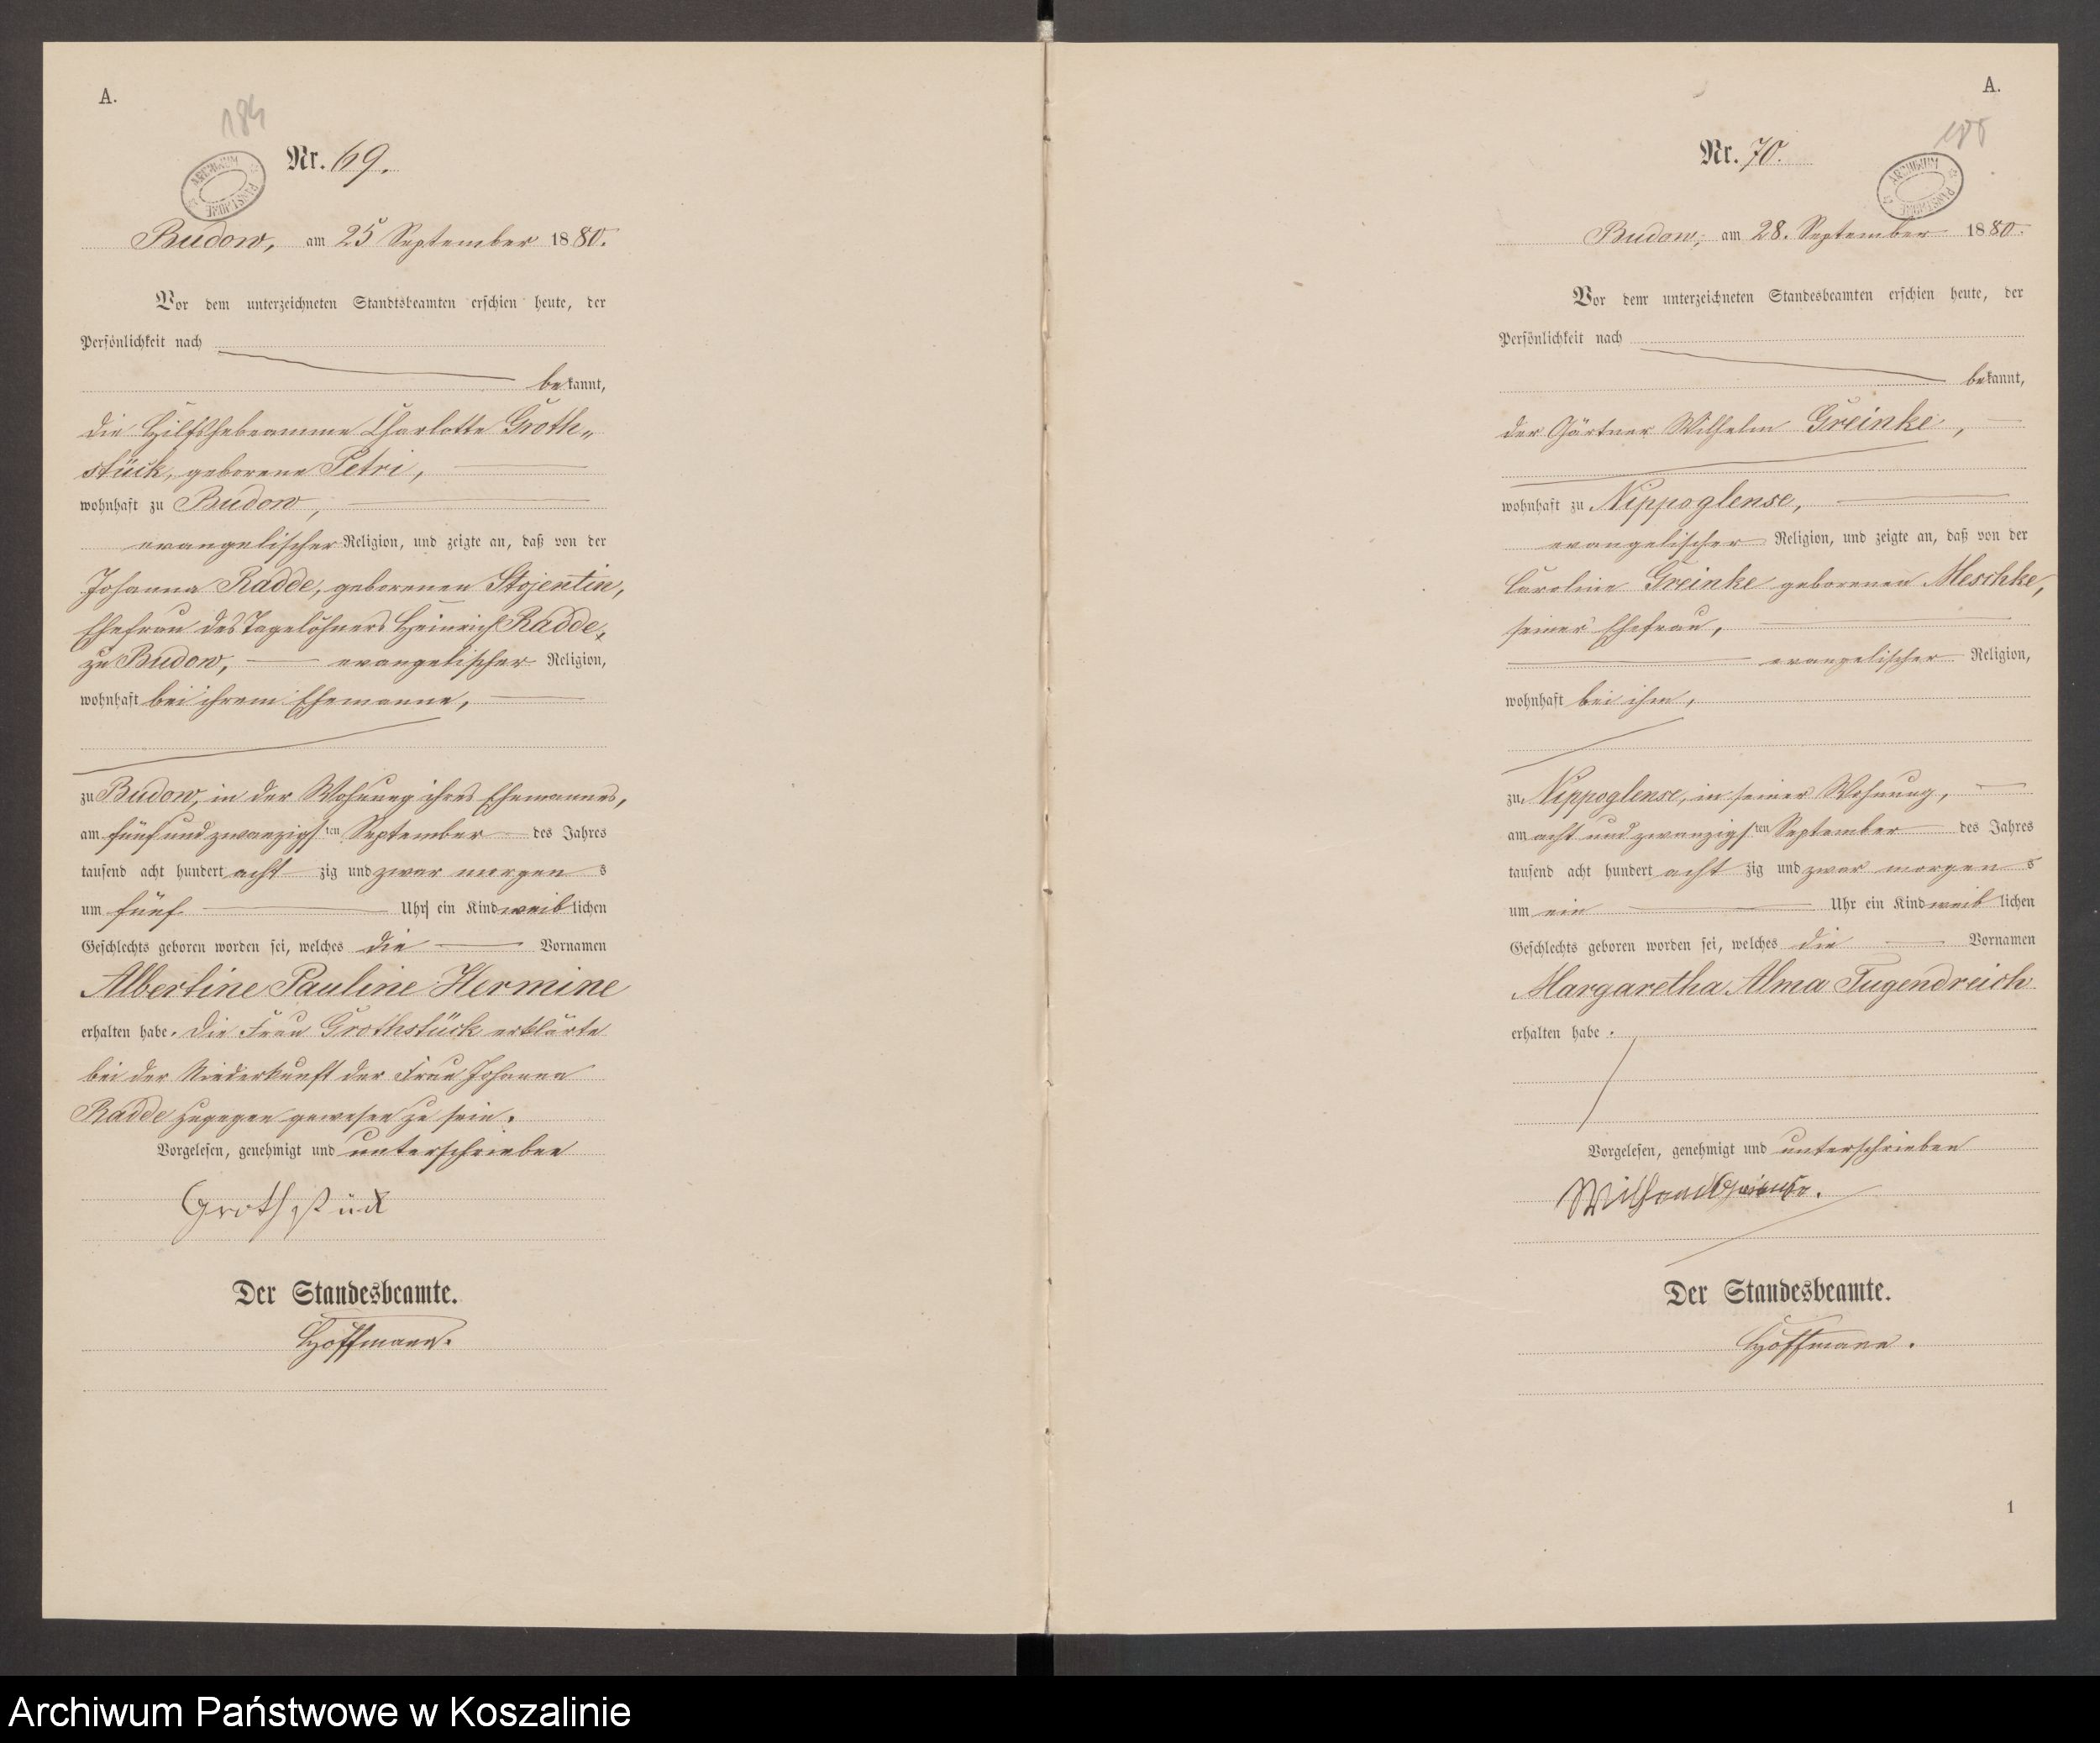 A.
184
Nr. 69.
ARCHIWUM PAŃSTWOWE
Budow, am 25 September 1880.
Vor dem unterzeichneten Standtsbeamten erschien heute, der
Persönlichkeit nach
bekannt,
die Hilfshebeamme Charlotte Groth„
stück, geborene Petri,
wohnhaft zu Budow,
evangelischer Religion, und zeigte an, daß von der
Johanna Radde, geborenen Stojentin,
Ehefrau des Tagelöhners Heinrich Radde,
zu Budow, evangelischer Religion,
wohnhaft bei ihrem Ehemanne,
zu Budow, in der Wohnung ihres Ehemannes,
am fünf und zwanzigsten September des Jahres
tausend acht hundert achtzig und zwar morgens
um fünf Uhr ein Kind weiblichen
Geschlechts geboren worden sei, welches die Vornamen
Albertine Pauline Hermine
erhalten habe. Die Frau Grothstück erklärte
bei der Niederkunft der Frau Johanna
Radde zugegen gewesen zu sein.
Vorgelesen, genehmigt und unterschrieben
Grothstück
Der Standesbeamte.
Hoffmann.
A.
185
Nr. 70.
ARCHIWUM PAŃSTWOWE
Budow, am 28. September 1880.
Vor dem unterzeichneten Standesbeamten erschien heute, der
Persönlichkeit nach
bekannt,
der Gärtner Wilhelm Greinke,
wohnhaft zu Nippoglense,
evangelischer Religion, und zeigte an, daß von der
Caroline Greinke geborenen Meschke,
seiner Ehefrau,
evangelischer Religion,
wohnhaft bei ihm,
zu Nippoglense, in seiner Wohnung,
am acht und zwanzigsten September des Jahres
tausend acht hundert achtzig und zwar morgens
um ein Uhr ein Kind weiblichen
Geschlechts geboren worden sei, welches die Vornamen
Margaretha Alma Tugendreich
erhalten habe.
Vorgelesen, genehmigt und unterschrieben
Wilhelm Greinke.
Der Standesbeamte.
Hoffmann.
1
Archiwum Państwowe w Koszalinie